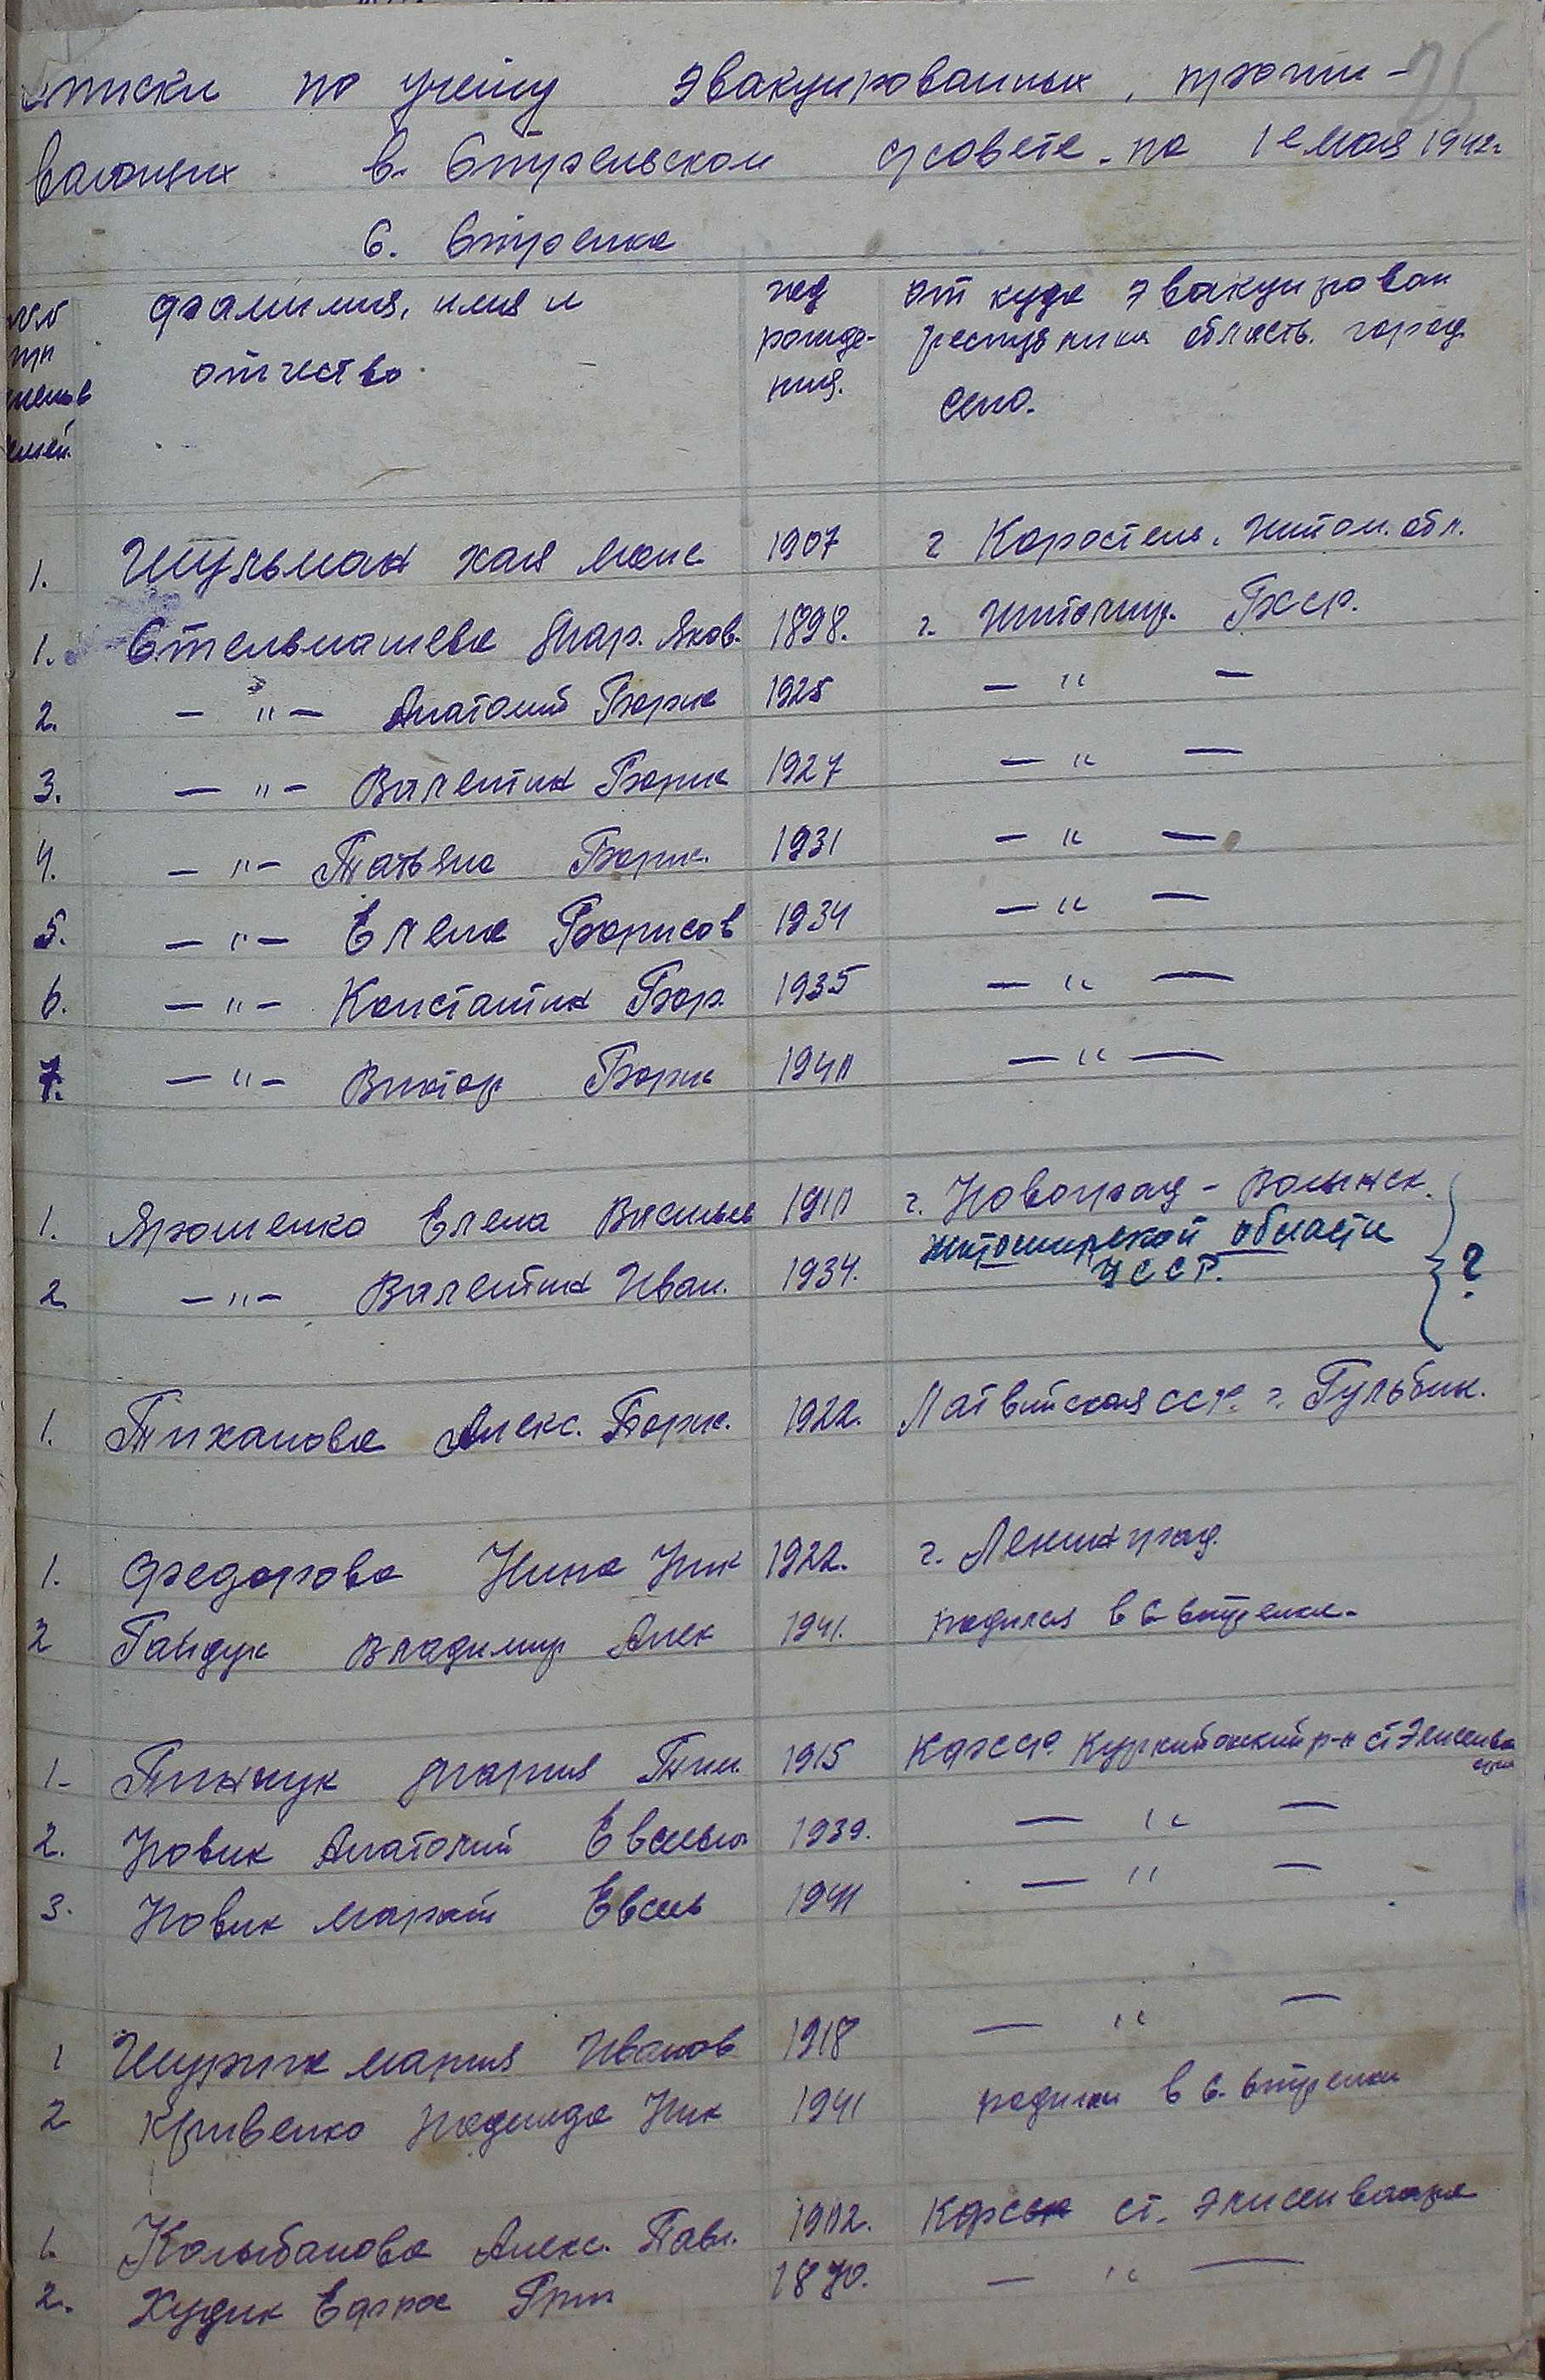 списки по учету эвакуированных, прожи-
25
вающих в. Стрельском с/совете. на 1е мая 1942г
С. Стрелка
фамилия, имя и
отчество
год
рожде-
ния.
от куда эвакуирован
республика область. город
село.
1. Шульман хая Моис. 1907 г Коростень. Житом. обл.
1. Стельмашева Мар. Яков. 1898. г. Житомир.
2. — " — Анатолий Борис 1925 — " —
3. — " — Валентин Борис 1927 — " —
4. — " — Татьяна Борис. 1931 — " —
5. — " — Елена Борисов 1934 — " —
6. — " — Константин Бор. 1935 — " —
7. — " — Виктор Борис 1940 — " —
1. Ярошенко Елена Васильев 1910 г. Новоград - Волынск.
Житомирской области
УССР. ?
2 — " — Валентин Иван. 1934.
1. Тиханова Алекс. Борис. 1922. Латвийская ССР. г. Гульбин.
1. Федорова Нина Ник 1922. г. Ленинград.
2 Гайдук Владимир Алек 1941. родился в с. Стрелке.
1. Мария Тим. 1915 КФССР. Куркийокский р-н ст Элисенва
2. Новик Анатолий 1939. — " —
3. Новик Марат 1941 — " —
1 Мария Иванов 1918 — " —
2 Кривенко Надежда Ник 1941 родилась в с. Стрелки
1. Колыбанова Алекс. Павл. 1902. ст. Элисенваара
2. Худик Гри 1870. — " —